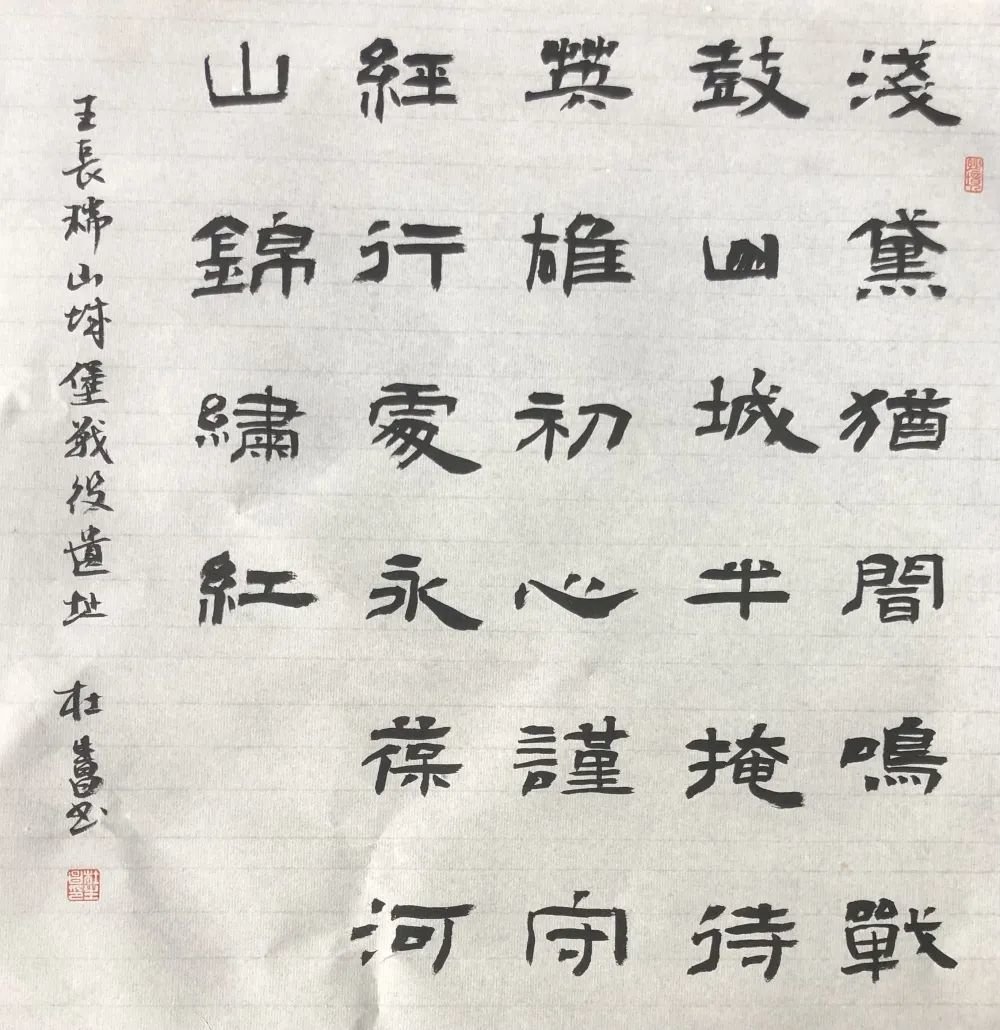 淺黛猶聞鳴戰
鼓山城半掩待
英雄初心謹守
經行處永葆河
山錦繡紅
王長瑞山城堡戰役遺址 杜生昌书